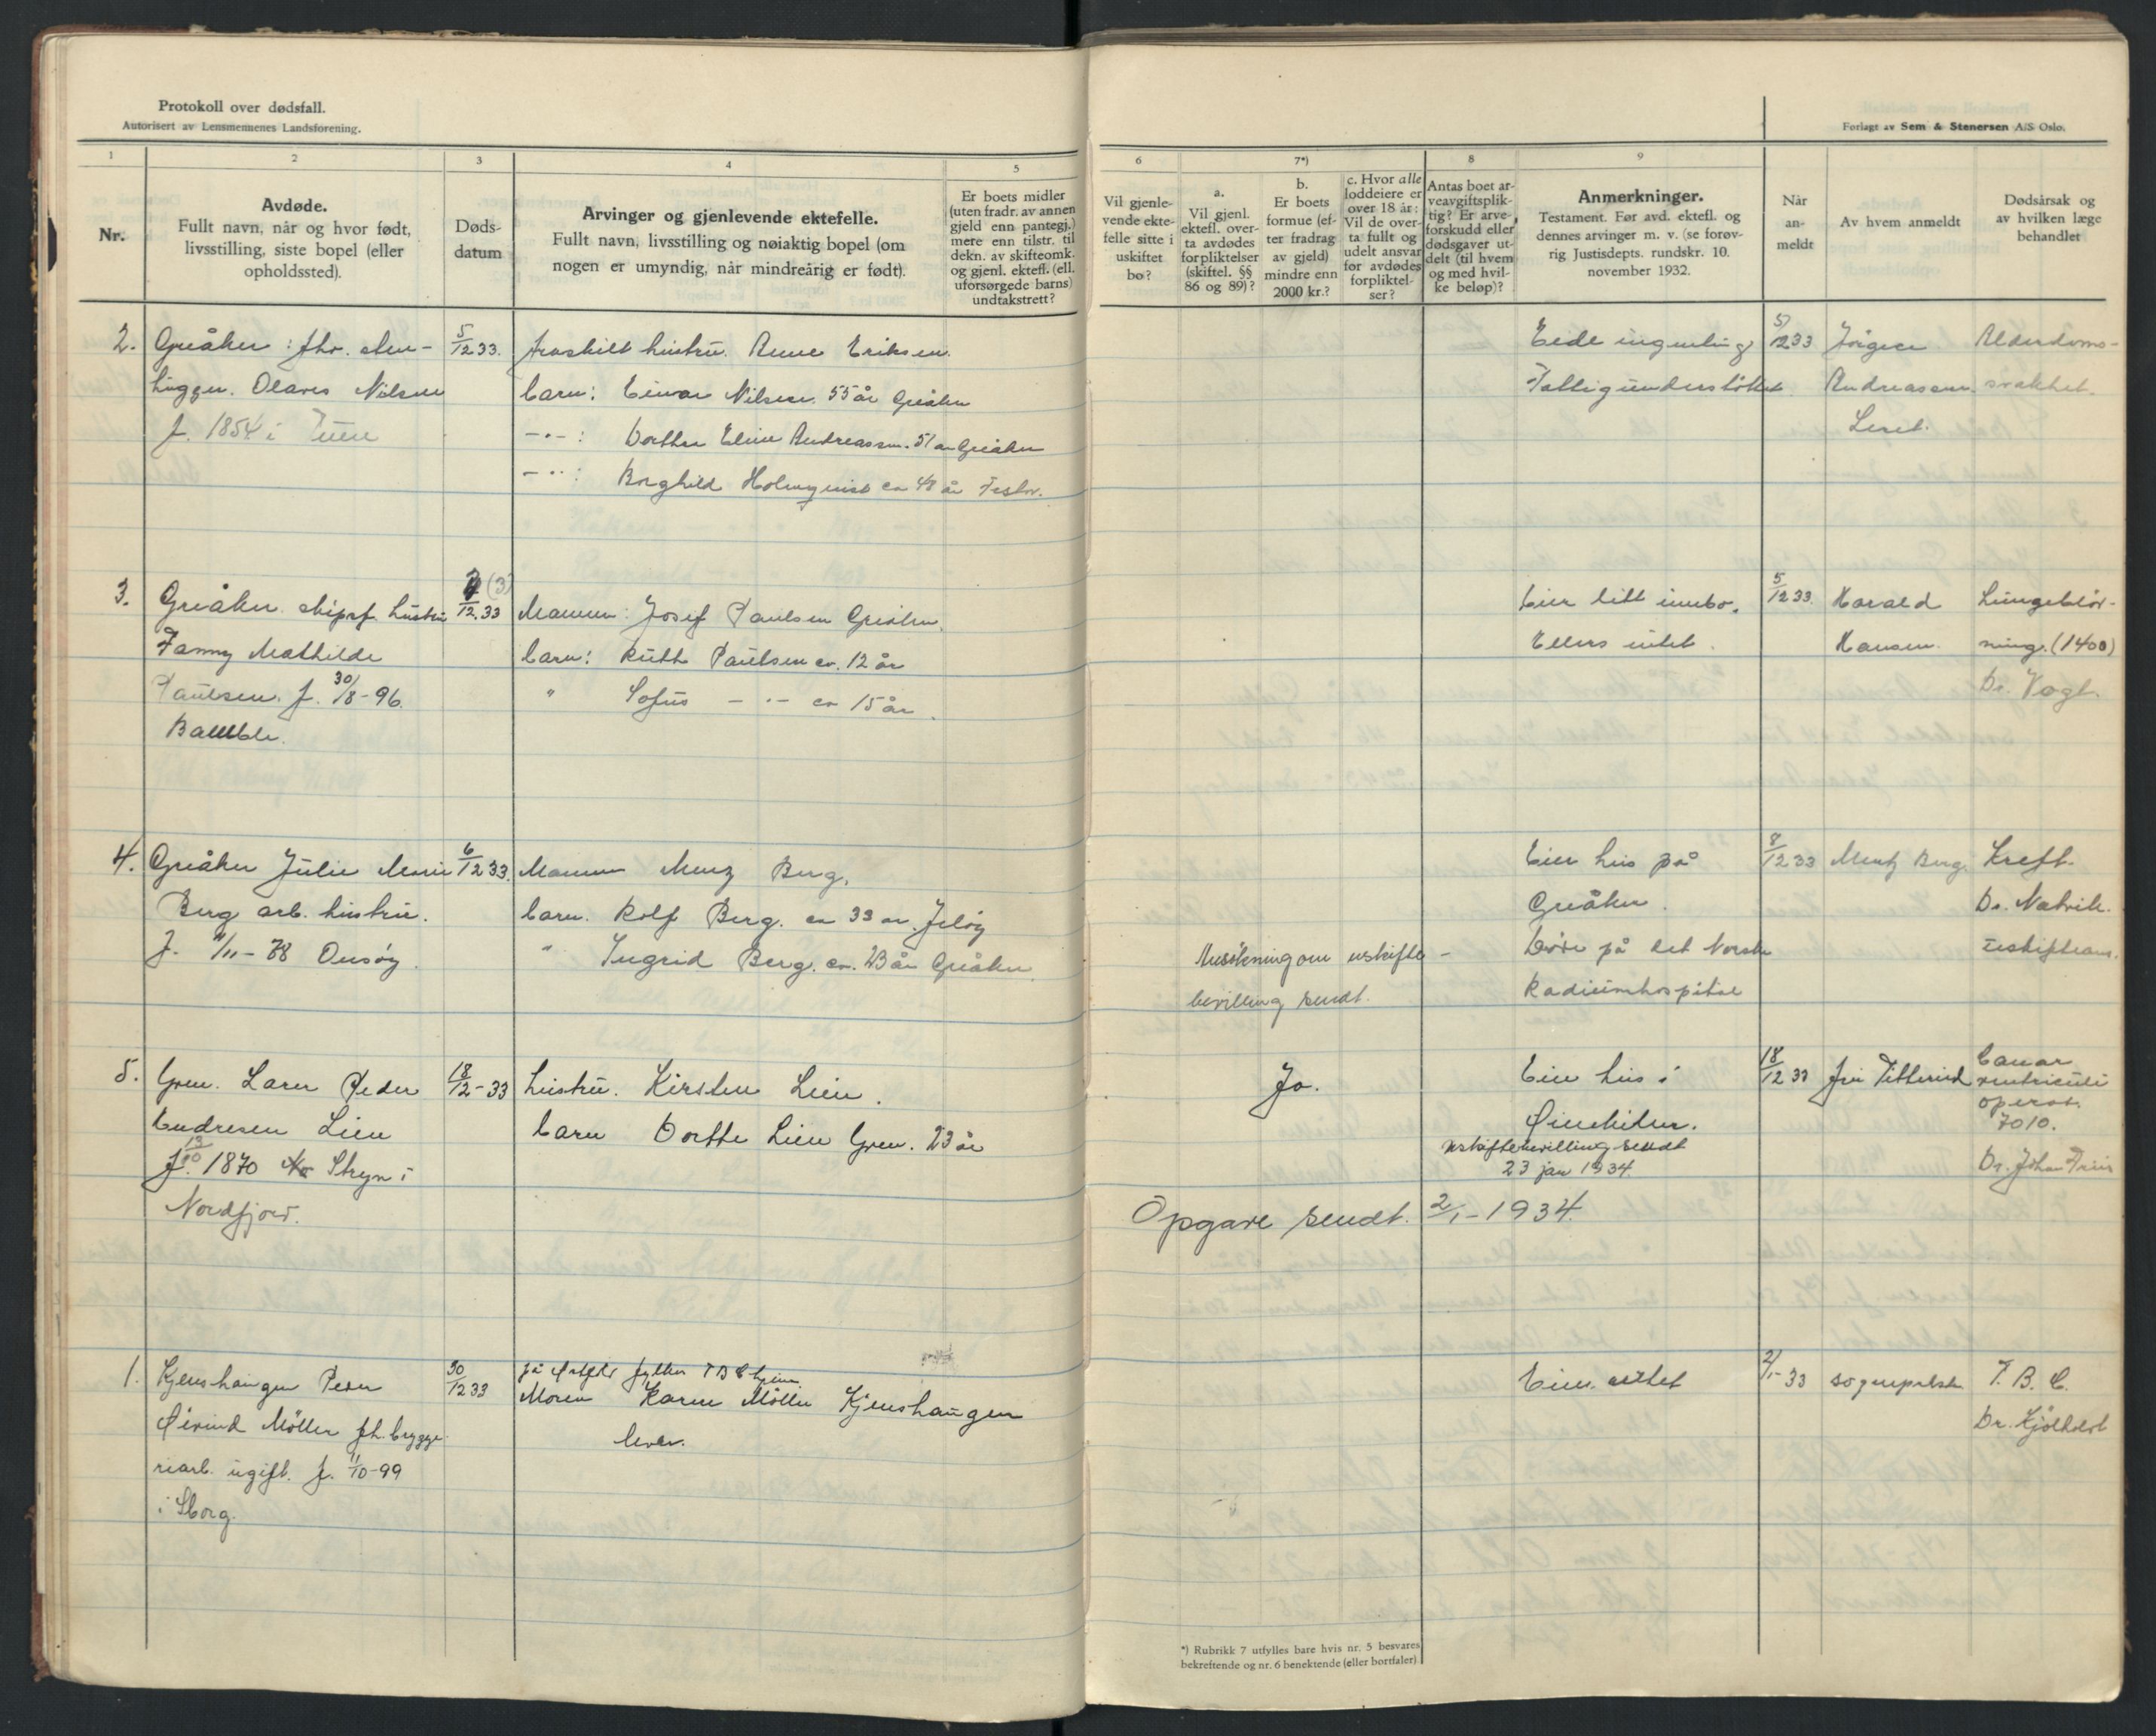 Protokoll over dødsfall.
Autorisert av Lensmennenes Landsforening.
1
2
3
4
5
Nr.
Avdøde.
Fullt navn, når og hvor født,
livsstilling, siste bopel (eller
opholdssted).
Døds-
datum
Arvinger og gjenlevende ektefelle.
Fullt navn, livsstilling og nøiaktig bopel (om
nogen er umyndig, når mindreårig er født).
Er boets midler
(uten fradr. av annen
gjeld enn pantegj.)
mere enn tilstr. til
dekn. av skifteomk.
og gjenl. ektefl. (ell.
uforsørgede barns)
undtakstrett?
2.
Greåker : fhv. sten-
hugger. Olaves Nilsen
f. 1854 i Tune
5/12 33.
fraskilt hustru. Anne Eriksen.
barn: Einar Nilsen. 55 år Greåker
-"- : Dorthea Eline Andreassen. 51 år Greåker
-"- : Borghild Holmqvist ca 48 år
3.
Greåker. skipsf. hustru
Fanny Mathilde
Paulsen. f. 30/8-96.
Bamble.
(3)
12.33
Mannen: Josef Paulsen Greåker.
barn: Ruth Paulsen ca. 12 år
" Sofus -"- ca 15 år.
4.
Greåker Julie Marie
Berg arb. hustru.
f. /11-78 Onsøy.
6/12 33.
Mannen Menz Berg.
barn. Rolf Berg. ca 33 år. Jeløy
" Ingrid Berg. ca. 23 år Greåker
5.
Gren. Peder
Endresen Lien
f. 13/10 1870 Stryn i
Nordfjord.
18/12-33
hustru. Kirsten Lien.
barn Dorthe Lien Gren. 23 år
1.
Kjenshaugen Peder
Øivind Møller fh. brygge-
riarb. ugift. f. 11/10-99
i Sborg.
30/12 33
på Østfold fylkes TBC heim
Moren Karen Møller Kjenshaugen
lever.
Forlagt av Sem & Stenersen A/S Oslo.
6
7*)
8
9
Vil gjenle-
vende ekte-
felle sitte i
uskiftet
bo?
a.
Vil gjenl.
ektefl. over-
ta avdødes
forpliktelser
(skiftel. §§
86 og 89)?
b.
Er boets
formue (ef-
ter fradrag
av gjeld)
mindre enn
2000 kr.?
c. Hvor alle
loddeiere er
over 18 år:
Vil de over-
ta fullt og
udelt ansvar
for avdødes
forpliktel-
ser?
Antas boet ar-
veavgiftsplik-
tig? Er arve-
forskudd eller
dødsgaver ut-
delt (til hvem
og med hvil-
ke beløp)?
Anmerkninger.
Testament. Før avd. ektefl. og
dennes arvinger m. v. (se forøv-
rig Justisdepts. rundskr. 10.
november 1932.
Når
an-
meldt
Av hvem anmeldt
Dødsårsak og
av hvilken læge
behandlet
Eide ingenting
Fattigunderstøttet.
5/12 33
Jørgen
Andreassen
Alderdoms-
svakhet.
Eier litt innbo.
Ellers intet.
5/12 33.
Harald
Hansen.
Lungeblød-
ning. (1400)
Dr. Vogt.
Ansøkning om uskifte-
bevilling sendt.
Eier hus på
Greåker.
Døde på det Norske
Radiumhospital
8/12 33
Mentz Berg.
Kreft.
Dr. Natvik.
Ja.
Eier hus i
uskiftebevilling sendt
23 jan 1934.
18/12 33
ventriculi
operat.
7010.
Dr. Johan Friis
Opgave sendt. 2/1-1934.
Eier intet
2/1-33
sogneprest
T. B. C.
Dr. Kjølholdt
*) Rubrikk 7 utfylles bare hvis nr. 5 besvares
bekreftende og nr. 6 benektende (eller bortfaler)